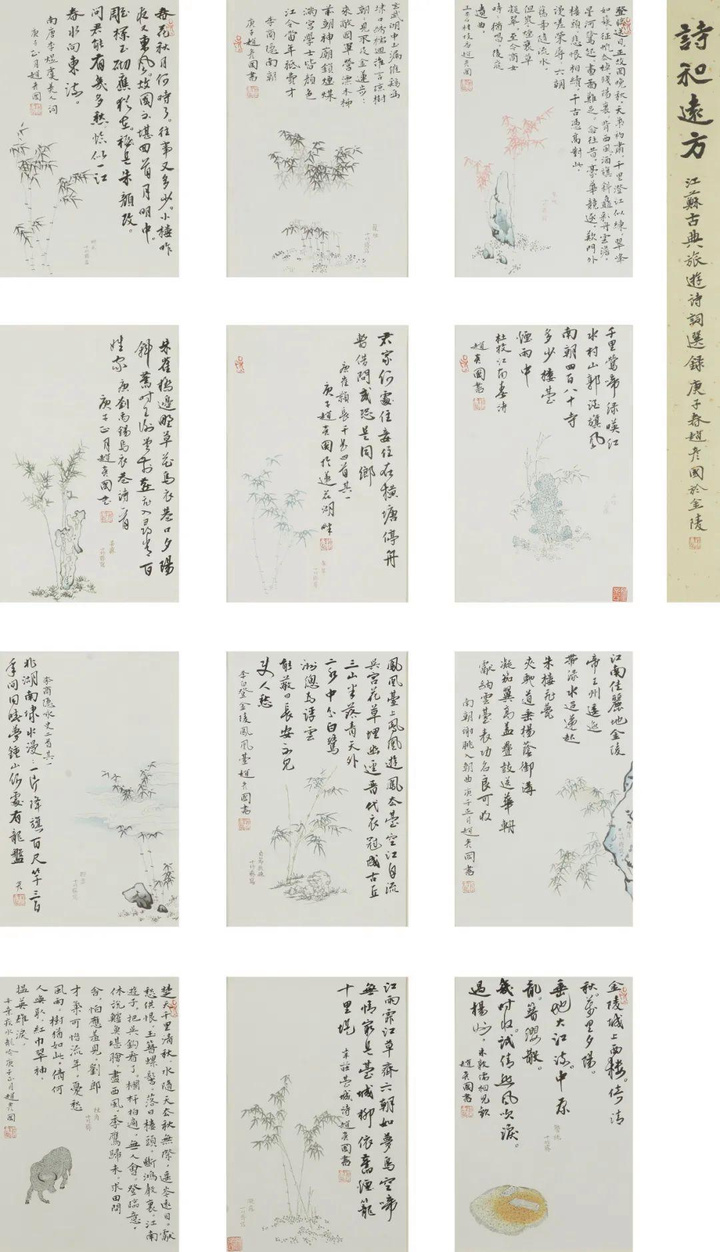 詩和遠方
江蘇古典旅遊詩詞選錄 庚子春趙彥國於金陵
登臨送目正故國晚秋天氣初肅千里澄江似練翠峰
如簇征帆去棹殘陽裏背西風酒旗斜矗彩舟雲淡
星河鷺起畫圖難足念往昔豪華競逐歎門外
樓頭悲恨相續千古憑高對此
謾嗟榮辱六朝
舊事隨流水
但寒煙衰草
凝綠至今商女
時時猶唱後庭
遺曲
王安石桂枝香趙彥國
玄武湖中玉漏催雞鳴
埭口繡襦迴誰言瓊樹
朝朝見不及金蓮步步
來敵國軍營漂木柹
前朝神廟鎖煙煤
滿宮學士皆顏色
江令當年秪費才
李商隱南朝
庚子趙彥國書
春花秋月何時了。往事又多少。小樓昨
夜又東風。故國不堪回首月明中。
雕欄玉砌應猶在。祇是朱顏改。
問君能有幾多愁。恰似一江
春水向東流。
南唐李煜虞美人詞
庚子正月趙彥國
千里鶯啼綠暎紅
水村山郭酒旗風
南朝四百八十寺
多少樓臺
煙雨中
杜牧江南春詩
趙彥國書
君家何處住妾住在橫塘停舟
暫借問或恐是同鄉
唐崔顥長干曲四首其一
庚子趙彥國於蓮花湖畔
朱雀橋邊野草花烏衣巷口夕陽
斜舊時王謝堂前燕飛入尋常百
姓家
唐劉禹錫烏衣巷詩一首
庚子正月趙彥國書
江南佳麗地金陵
帝王州逶迤
帶淥水迢遞起
朱樓飛甍
夾馳道垂楊蔭御溝
凝笳翼高蓋疊鼓送華輈
獻納雲臺表功名良可收
南朝謝朓入朝曲庚子正月趙彥國書
鳳凰臺上鳳凰遊鳳去臺空江自流
吳宮花草埋幽逕晉代衣冠成古丘
三山半落青天外
二水中分白鷺
洲總為浮雲
能蔽日長安不見
使人愁
李白登金陵鳳凰臺趙彥國書
李商隱詠史二首其一
北湖南埭水漫漫一片降旗百尺竿三百
年間同曉夢鍾山何處有龍盤
金陵城上西樓。倚清
秋。萬里夕陽。
垂地大江流。中原
亂。簪纓散。
幾時收。試倩悲風吹淚。
過揚州。
朱敦儒相見歡
趙彥國書
江雨霏霏江草齊六朝如夢鳥空啼
無情最是臺城柳依舊煙籠
十里堤
韋莊臺城詩趙彥國書
楚天千里清秋水隨天去秋無際遙岑遠目獻
愁供恨玉簪螺髻落日樓頭斷鴻聲裏江南
遊子把吳鉤看了欄杆拍遍無人會登臨意
休說鱸魚堪膾盡西風季鷹歸未求田問
舍怕應羞見劉郎
才氣可惜流年憂愁
風雨樹猶如此倩何
人喚取紅巾翠袖
搵英雄淚
辛棄疾水龍吟庚子正月趙彥國書